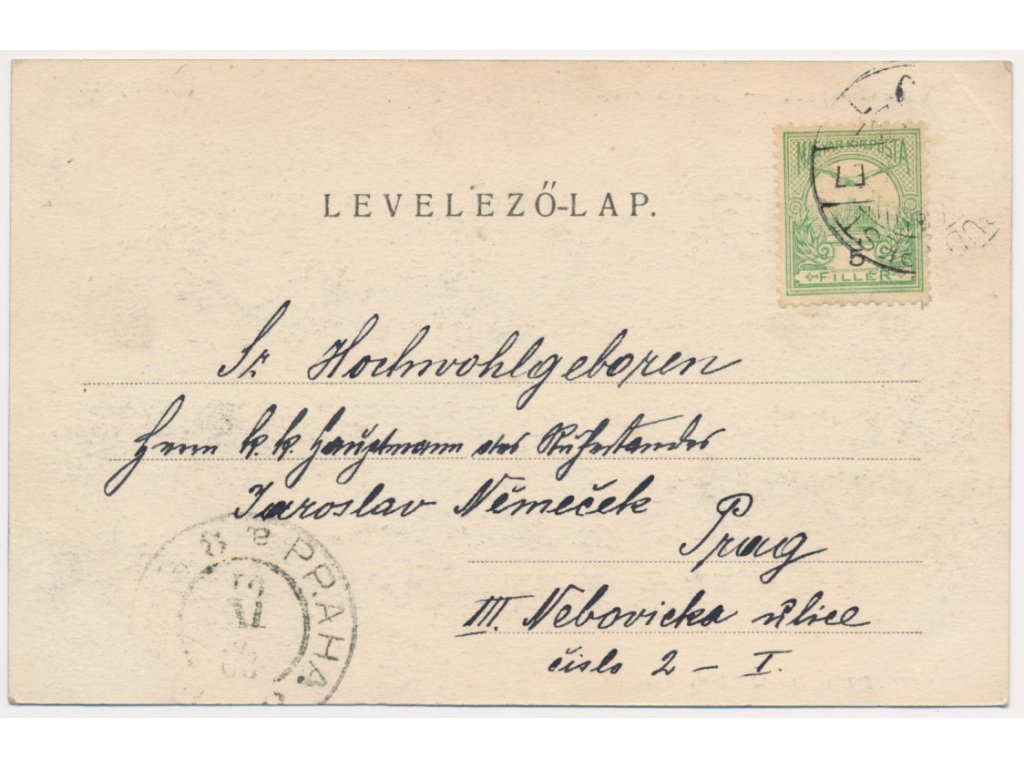 LEVELEZŐ-LAP.
MAGYAR KIR. POSTA
5
FILLÉR
Sr Hochwohlgeboren
Herrn k. k. Hauptmann des Ruhestandes
Jaroslav Němeček
Prag
III. Nebovicka ulice
čislo 2 – I.
PRAHA